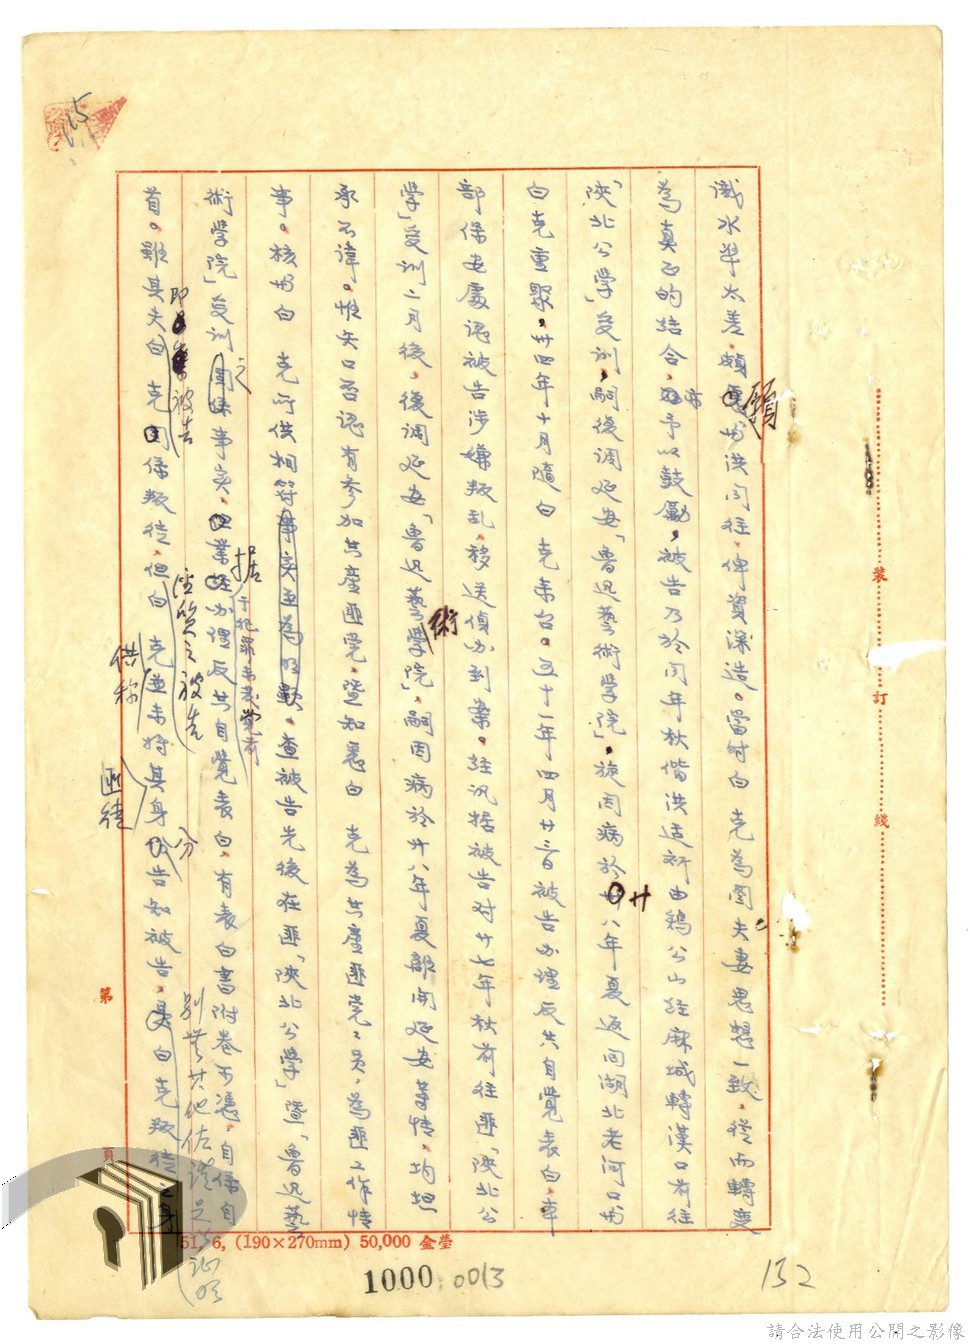 識水準太差，頗願與洪同往，俾資深造。當時白　克為圖夫妻思想一致，從而轉變
為真正的結合，亦予以鼓勵，被告乃於同年秋偕洪造訢由鷄公山經麻城轉漢口前往
「陝北公學」受訓，嗣後調延安「魯迅藝術學院」，旋因病於廿八年夏返回湖北老河口與
白克重聚。卅四年十月隨白　克來台。五十一年四月廿三日被告办理反共自覺表白，本
部保安處認被告涉嫌叛乱，移送偵办到案。經訊据被告对廿七年秋前往匪「陝北公
學」受訓二月後，復調延安「魯迅藝術學院」，嗣因病於廿八年夏離開延安等情，均坦
承不諱。惟矢口否認有參加共產匪党，暨知悉白　克為共產匪党党員，為匪工作情
事。核與白　克所供相符，查被告先後在匪「陝北公學」暨「魯迅藝
術學院」受訓之事实，業据于犯罪未發覺前办理反共自覺表白，有表白書附卷可憑，自係自
首。雖其夫即被告白　克係叛徒，但白　克供称並未將其匪徒身分告知被告，
別無其他佐證足以証明
白克叛徒之身
裝
訂
線
第
頁
51, 6, (190×270mm) 50,000 金瑩
1000 0013
132
請合法使用公開之影像